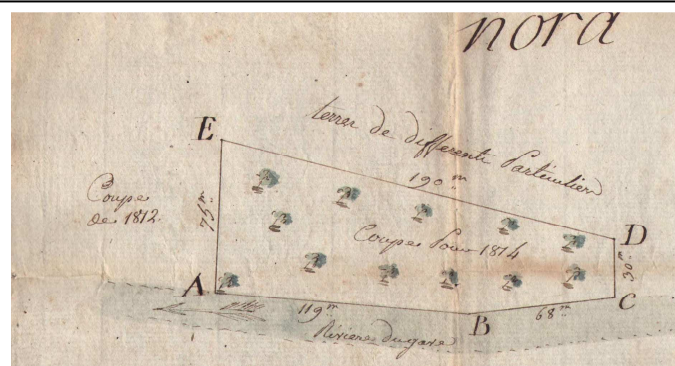 nord
terres de differents Particuliers
190 m
E
D
Coupe
de 1812
75 m
Coupe Pour 1814
30 m
A
C
119 m
B
68 m
Riviere du gave